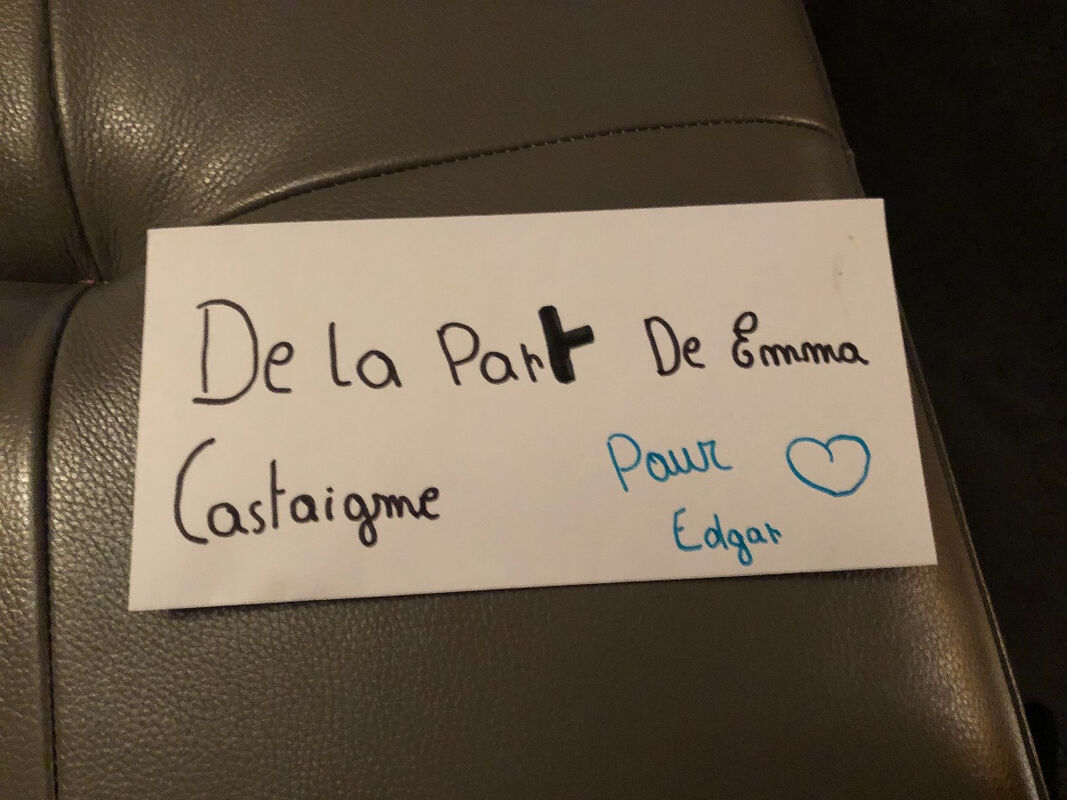 De la Part De Emma
Castaigme
Pour ♡
Edgar